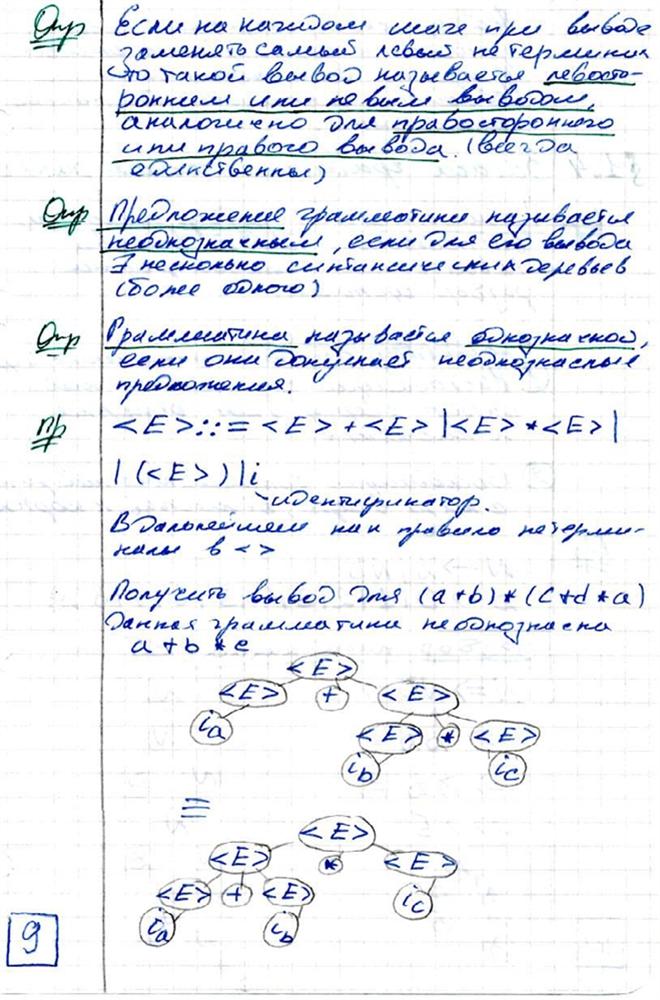 Опр Если на каждом шаге при выводе
заменять самый левый нетерминал
то такой вывод называется левосто-
ронним или левым выводом,
аналогично для правостороннего
или правого вывода. (всегда
единственны)
Опр Предложение грамматики называется
неоднозначным, если для его вывода
∃ несколько синтаксических деревьев
(более одного)
Опр Грамматика называется однозначной,
если они допускает неоднозначные
предложения.
Пр <E>::=<E>+<E>|<E>*<E>|
|(<E>)|i
идентификатор.
В дальнейшем как правило нетерми-
налы в <>
Получить вывод для (a+b)*(c+d*a)
Данная грамматика неоднозначна
a+b*c
<E>
<E> + <E>
ia <E> * <E>
ib ic
≡
<E>
<E> * <E>
<E> + <E> ic
ia ib
9